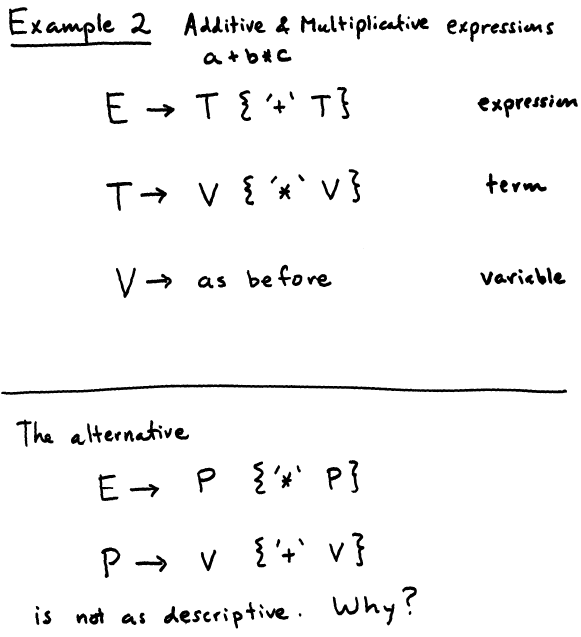 Example 2 Additive & Multiplicative expressions
a + b * c
E → T { '+' T } expression
T → V { '*' V } term
V → as before variable
The alternative
E → P { '*' P }
P → V { '+' V }
is not as descriptive. Why?